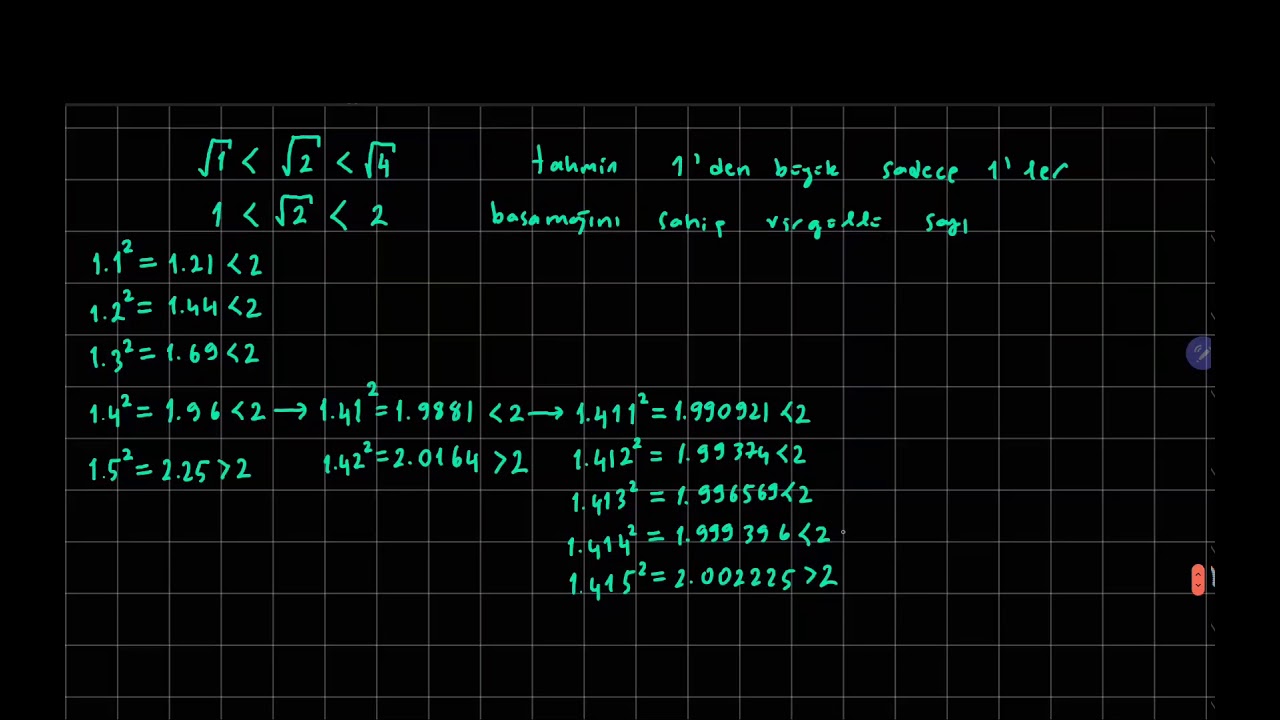 √1 < √2 < √4 tahmin 1'den büyük sadece 1'ler
1 < √2 < 2 basamağını sahip virgüllü sayı
1.1² = 1.21 < 2
1.2² = 1.44 < 2
1.3² = 1.69 < 2
1.4² = 1.96 < 2 → 1.41² = 1.9881 < 2 → 1.411² = 1.990921 < 2
1.5² = 2.25 > 2 1.42² = 2.0164 > 2 1.412² = 1.99374 < 2
1.413² = 1.996569 < 2
1.414² = 1.999396 < 2
1.415² = 2.002225 > 2